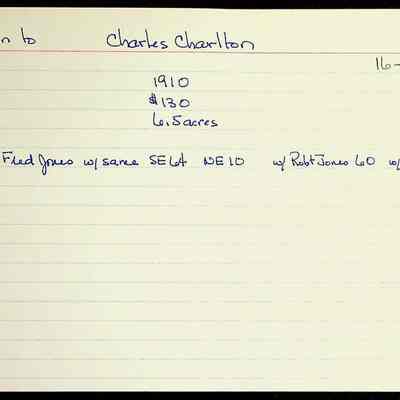 n to Charles Charlton
16-
1910
$130
6.5 acres
Fred Jones w/ same SE 64 NE 10 w/ Robt Jones 60 w/